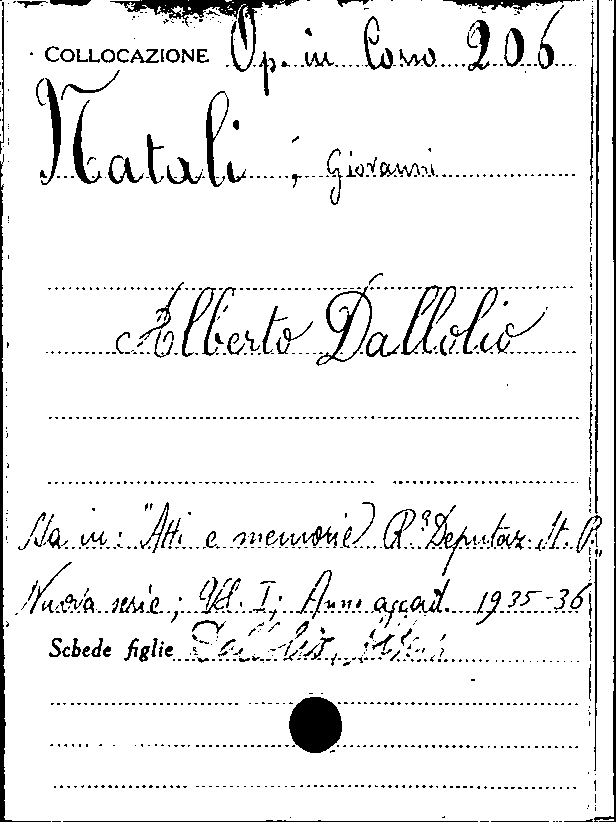 COLLOCAZIONE Op. in Corso 206
Natali, Giovanni
Alberto Dallolio
Sta in: "Atti e memorie) R.ª Deputaz. St. P."
Nuova serie; Vol. I; Anno accad. 1935-36
Schede figlie Dallolio,